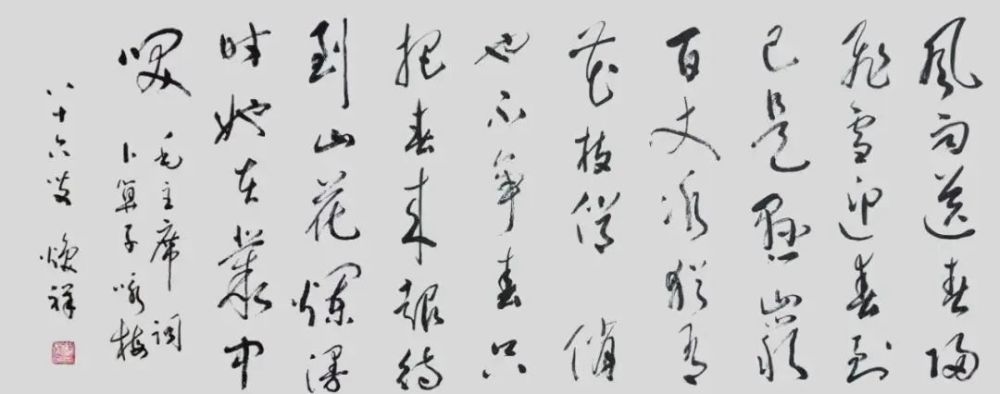 风雨送春归
飞雪迎春到
已是悬崖
百丈冰犹有
花枝俏 俏
也不争春只
把春来报待
到山花烂漫
时她在丛中
咲
毛主席词
卜算子咏梅
八十六叟 焕祥